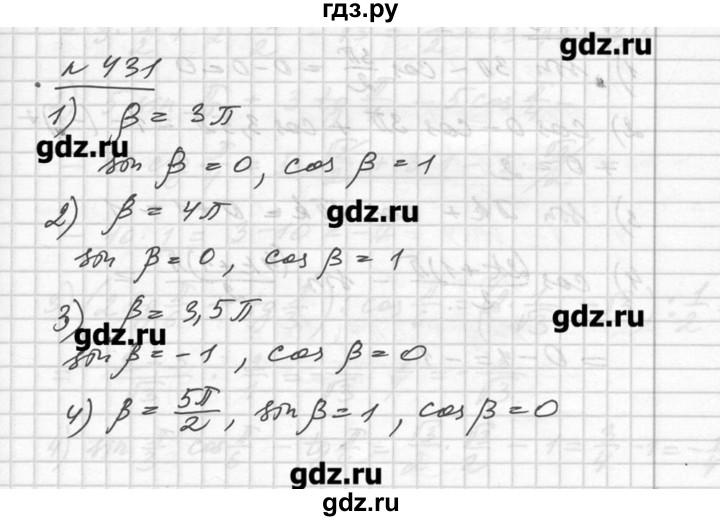 гдз.ру
gdz.ru
№ 431
1) β = 3π
gdz.ru
sin β = 0, cos β = 1
2) β = 4π
gdz.ru
sin β = 0, cos β = 1
3) β = 3,5π
gdz.ru
gdz.ru
sin β = -1, cos β = 0
4) β = 5π/2, sin β = 1, cos β = 0
gdz.ru
gdz.ru